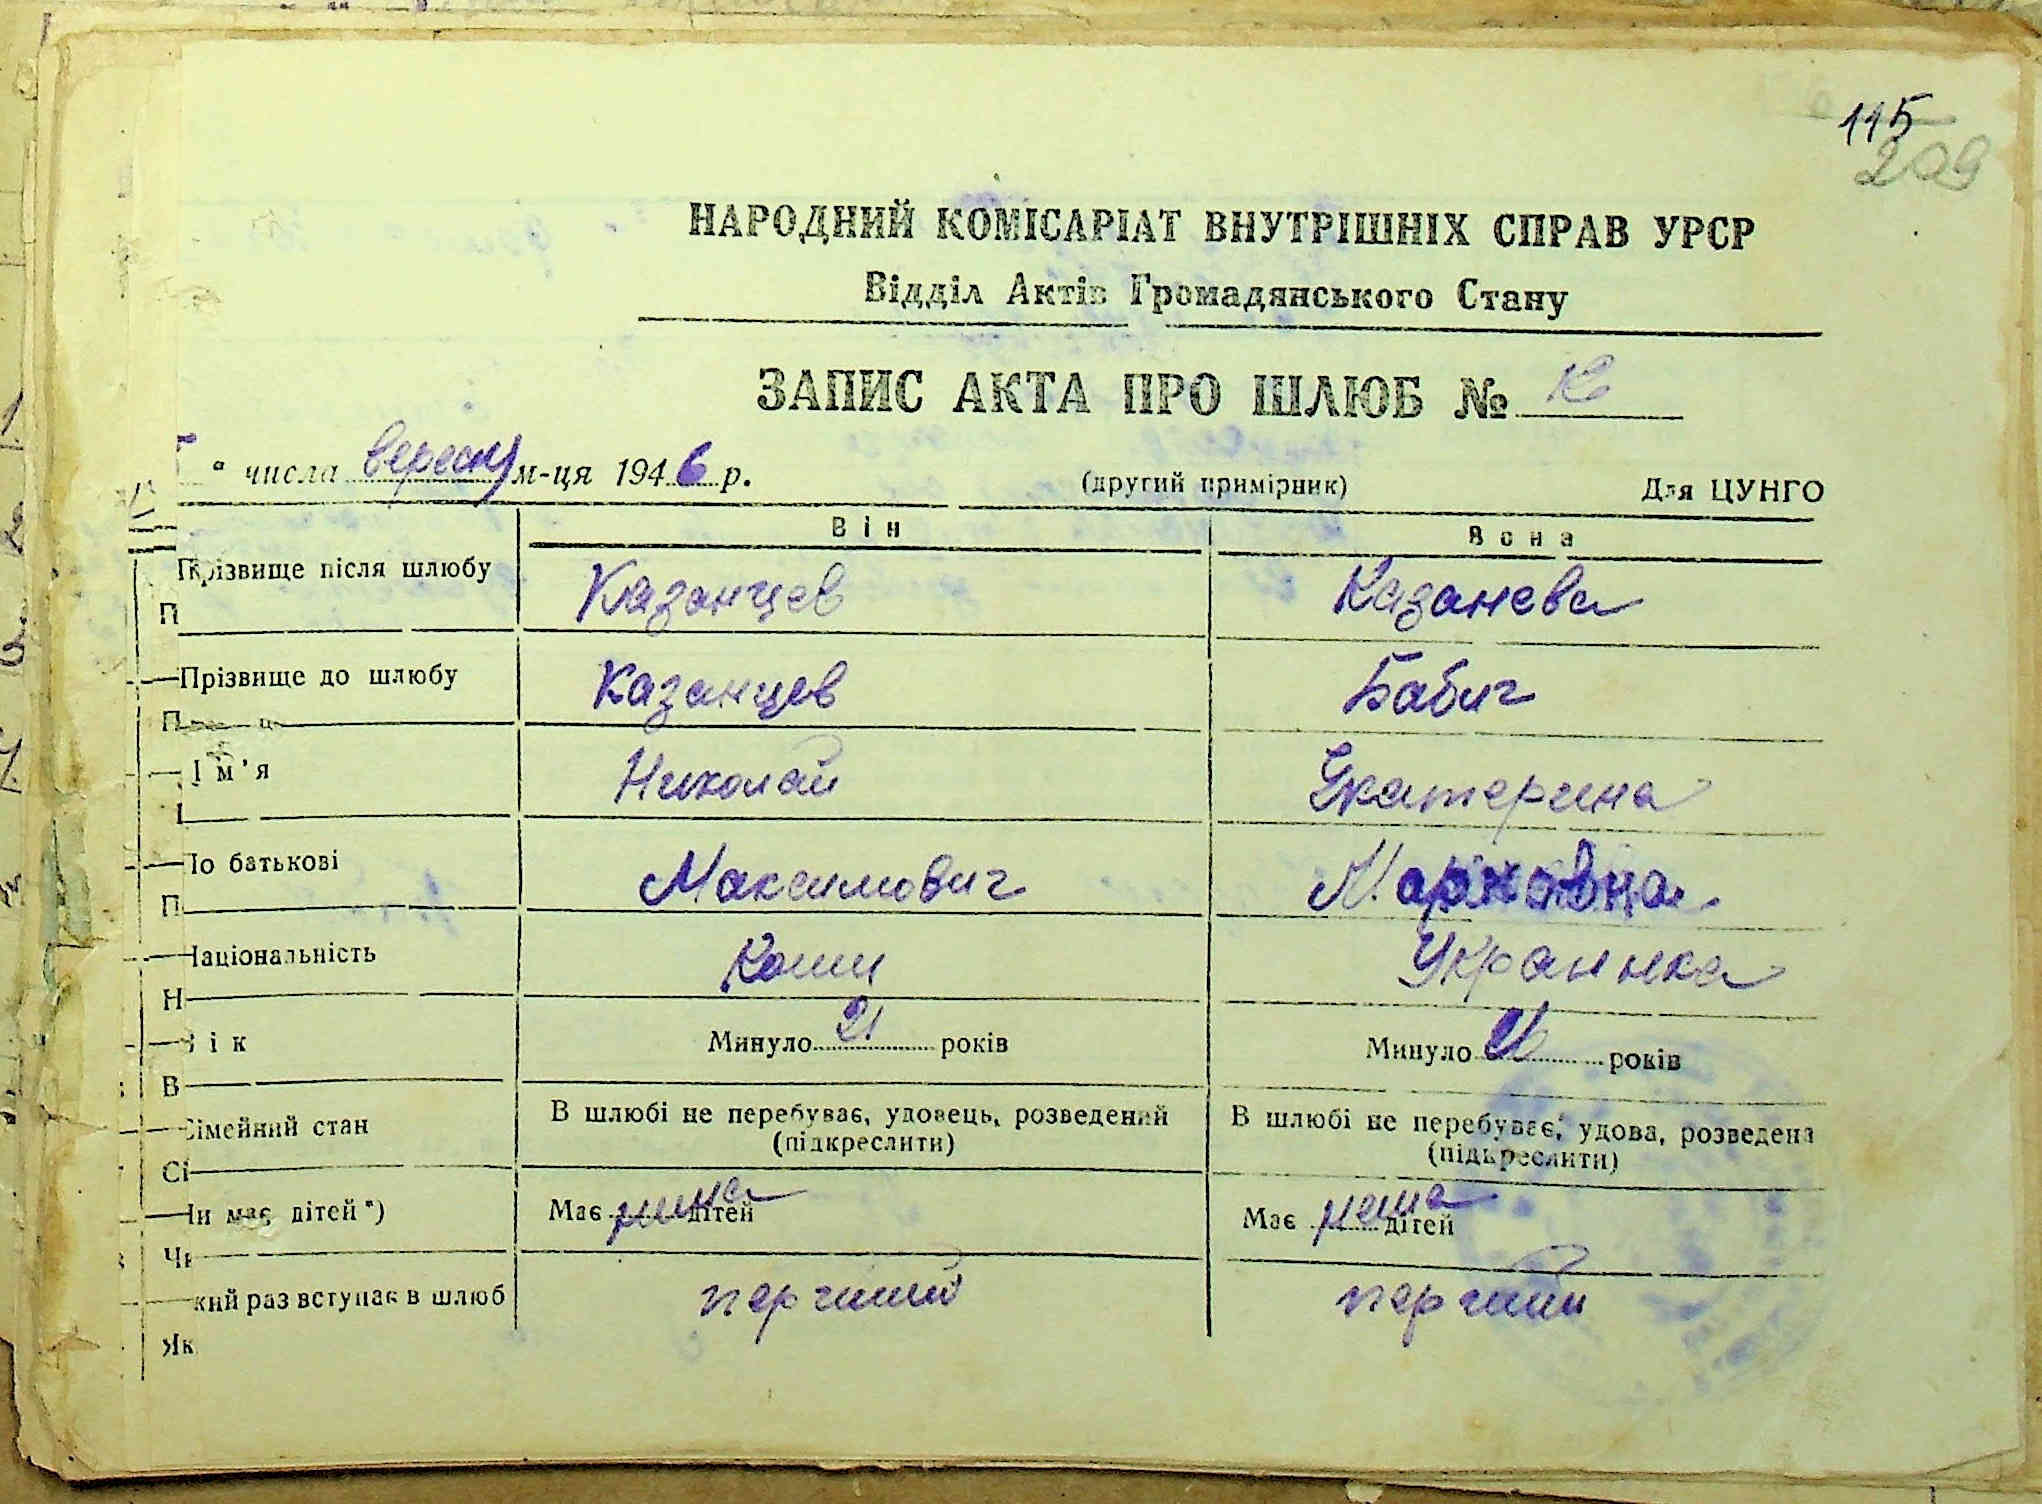 115
209
НАРОДНИЙ КОМІСАРІАТ ВНУТРІШНІХ СПРАВ УРСР
Відділ Актів Громадянського Стану
ЗАПИС АКТА ПРО ШЛЮБ №
" числа вересня м-ця 1946 р. (другий примірник) Для ЦУНГО
Він Вона
Прізвище після шлюбу Казанцев Казанева
П
Прізвище до шлюбу Казанцев Бабич
П
Ім'я Николай Екатерина
По батькові Максимович Марковна
П
Національність Коми Украинка
Н
Вік Минуло 21 років Минуло років
В
Сімейний стан В шлюбі не перебуває, удовець, розведений (підкреслити) В шлюбі не перебуває, удова, розведена (підкреслити)
Сі
Чи має дітей*) Має нима дітей Має нема дітей
Чи
кий раз вступає в шлюб перчий перчий
Як